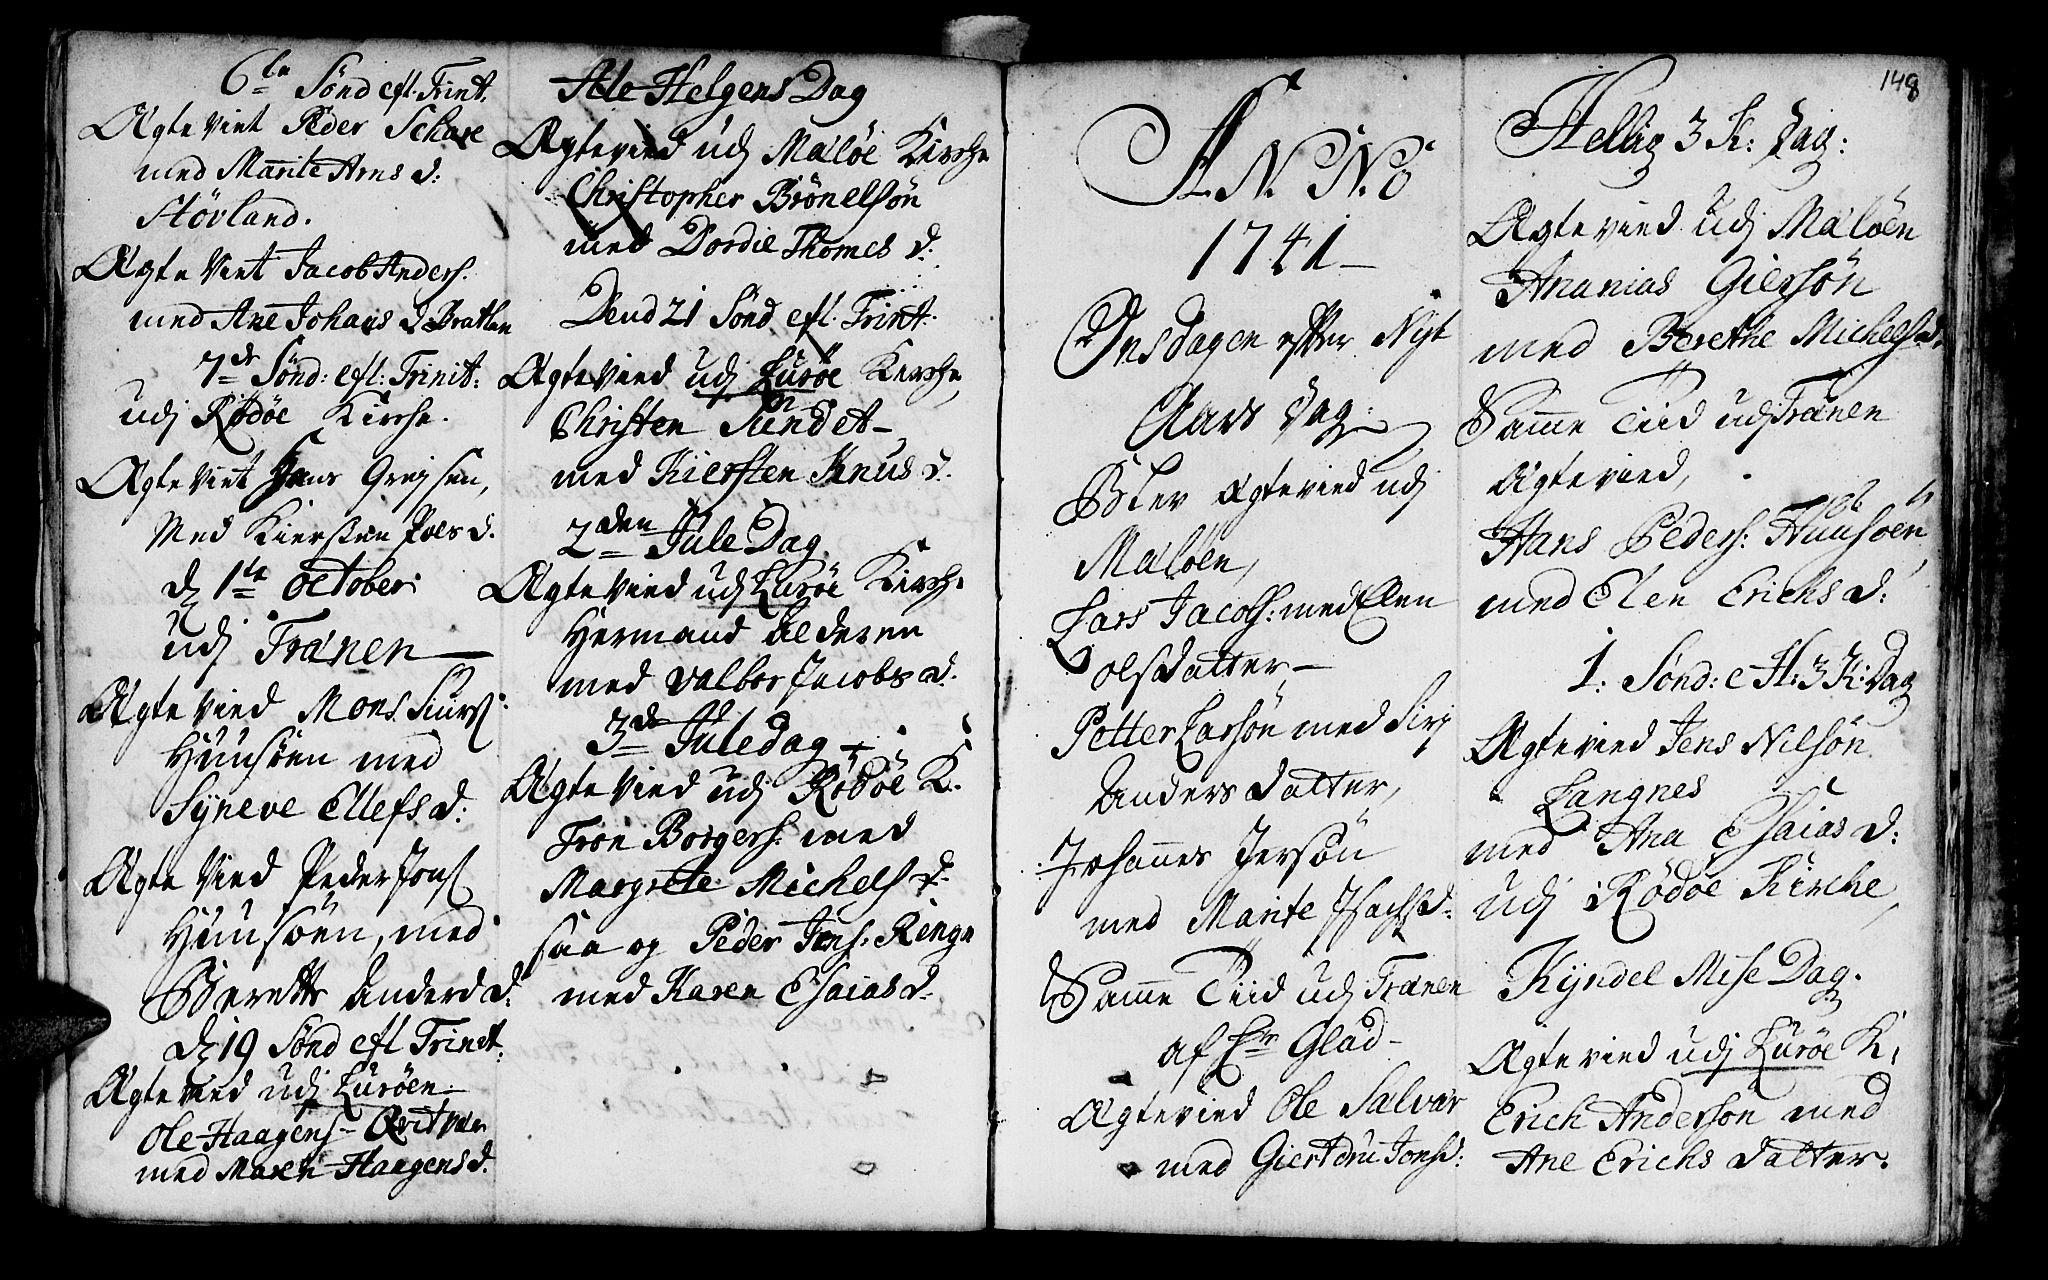 6te Sønd efl. Trint.
Ægte Viet Peder Schare
med Marite Arns d:
Støvland.
Ægte Viet Jacob Anders:
med Ane Johans d Bratlen
7de Sønd: efl: Trinit:
udj Rødøe Kirche.
Ægte Viet Hans Grejsen,
Med Kiersten Poels d.
d 1te october
udj Trænen
Ægte Vied Mons Siurs:
Huusøen med
Syneve Ellefs d:
Ægte Vied Peder Jons
Huusøen, med
Berette Anders d:
d 19 Sønd efl Trinit:
Ægte vied udj Lurøen
Ole Haagens
med Maren Haagens d.
Ale Helgens Dag
Ægtevied udj Maløe Kirche
Christopher Brönelsøn
med Dordie Thomes d:
Dend 21 Sønd efl. Trint.
Ægte Vied udj Lurøe Kirche
Christen Sundet
med Kiersten Knus d.
2den Jule Dag
Ægte Vied udj Lurøe Kirche
Hermand Alderen
med Valbor Jacobs d.
3de Juledag
Ægte Vied udj Rødøe K.
Tron Borgers: med
Margrete Michels d.
saa og Peder Jens: Renga
med Karen Esaias d.
148
ANNO
1741
Onsdagen efter Nyt
Aars Dag
Blev Ægtevied udj
Maløen,
Lars Jacobs: med Elen
olsdatter
Petter Larsøn med Siri
Andersdatter,
Johannes Jersøn
med Marite Isachs d:
Samme Tiid udj Trænen
af Hr Glad
Ægtevied Ole Salvær
med Giertdru Jons d:
Hellig 3 K: Dag:
Ægte vied udj Maløen
Ananias Giersøn
med Berethe Michels d.
Samme Tiid udj Trænen
Ægtevied,
Hans Peders: Huusøen
med Elen Erichs d:
1: Sønd: e H: 3 K: Dag
Ægtevied Jens Nilsøn
Langnes
med Ana Esaias d:
udj Rødøe Kirche,
Kyndel Mise Dag.
Ægte vied udj Lurøe K:
Erich Andersøn med
Ane Erichs datter.